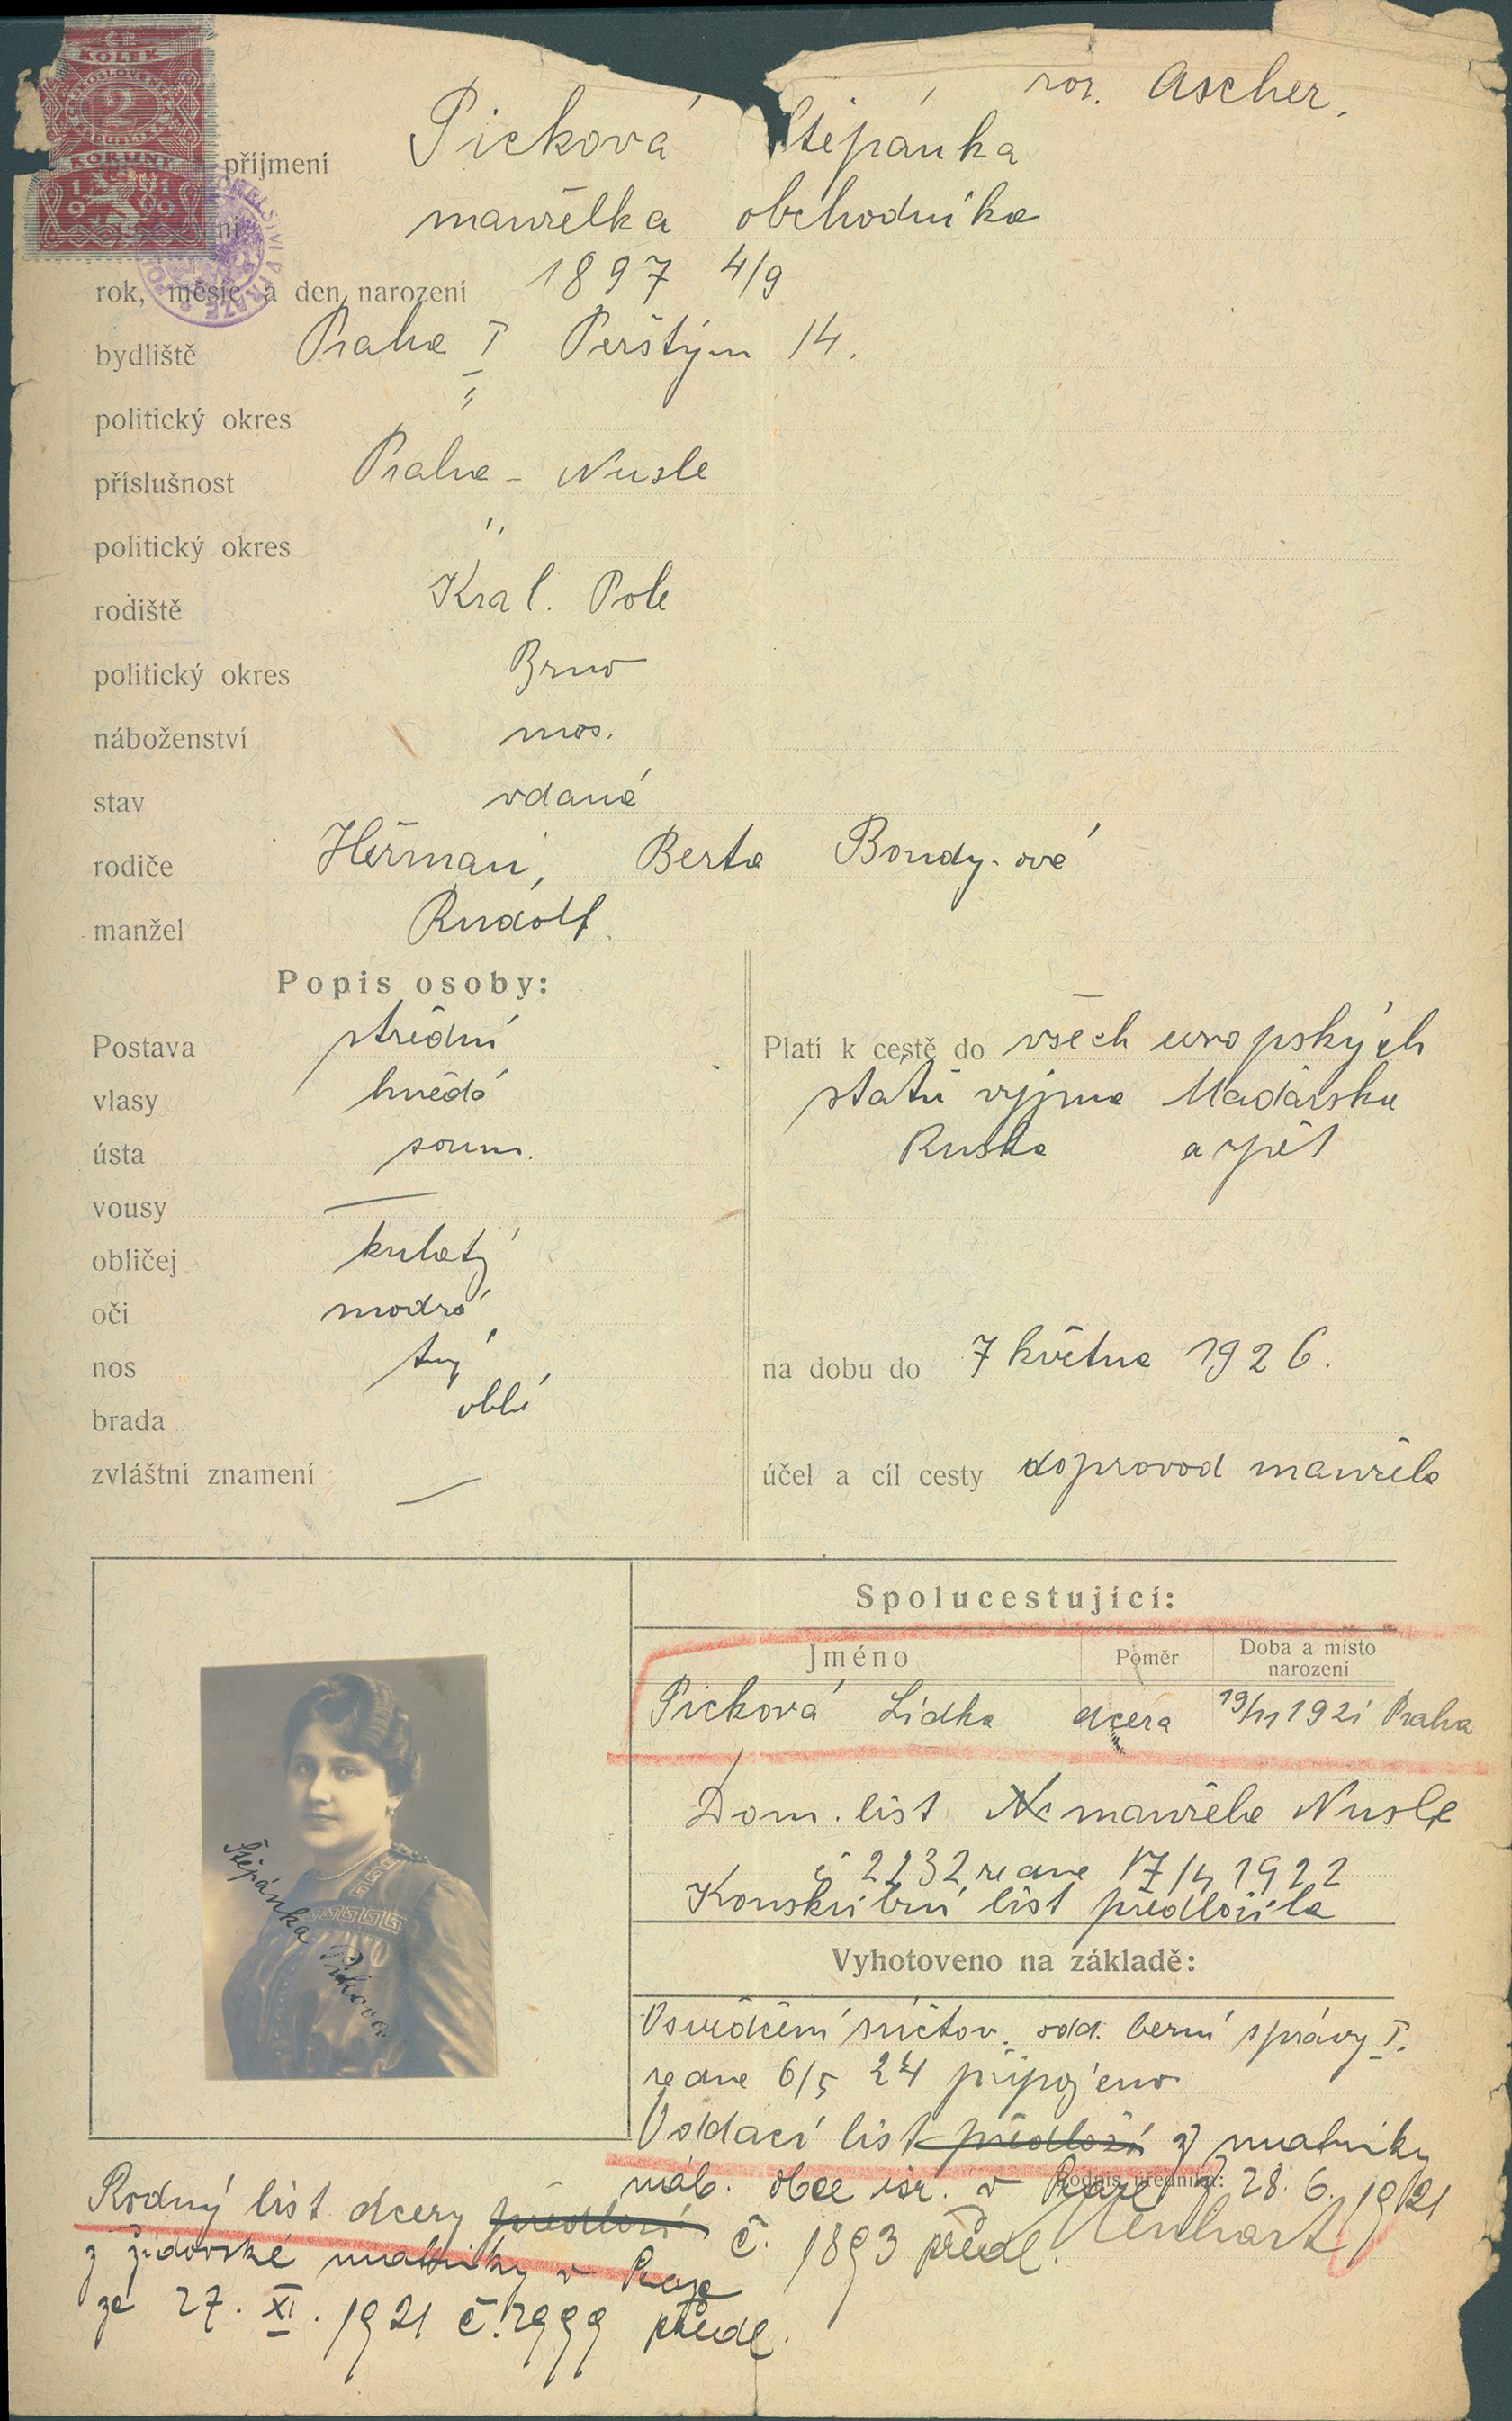 roz. Ascher.
ČR
KOLEK
ČESKOSLOVENSKÁ
2
KORUNY
1919
příjmení Picková Štěpánka
manželka obchodníka
rok, měsíc a den narození 1897 4/9
bydliště Praha I Perštýn 14.
politický okres "
příslušnost Praha - Nusle
politický okres "
rodiště Král. Pole
politický okres Brno
náboženství mos.
stav vdaná
rodiče Heřman, Berta Bondy-ová
manžel Rudolf.
Popis osoby:
Postava střední
vlasy hnědé
ústa soum.
vousy —
obličej kulatý
oči modré
nos tup
brada oblá
zvláštní znamení —
Platí k cestě do všech evropských
států vyjma Maďarska
Ruska a zpět
na dobu do 7 května 1926.
účel a cíl cesty doprovod manžela
Spolucestující:
Jméno Poměr Doba a místo narození
Picková Lidka dcera 19/11 1921 Praha
Dom. list manžela Nusle
č 2232 ze dne 17/4 1922
Konskribční list předložila
Vyhotoveno na základě:
Osvědčení súčtov. odd. berní správy I.
ze dne 6/5 24 připojeno
Oddací list předloží z matriky
náb. obce isr. v Praze z 28. 6. 1921
Podpis úředníka:
č. 1893 předl. Lenhart
Rodný list dcery předloží
z židovské matriky v Praze
ze 27. XI. 1921 č. 2999 předl.
Štěpánka Picková